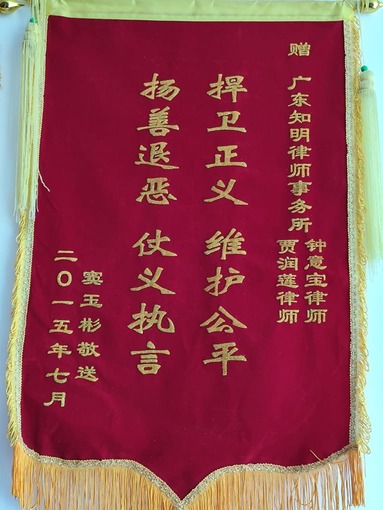 赠 广东知明律师事务所
钟意宝律师
贾润莲律师
捍卫正义 维护公平
扬善退恶 仗义执言
窦玉彬敬送
二〇一五年七月